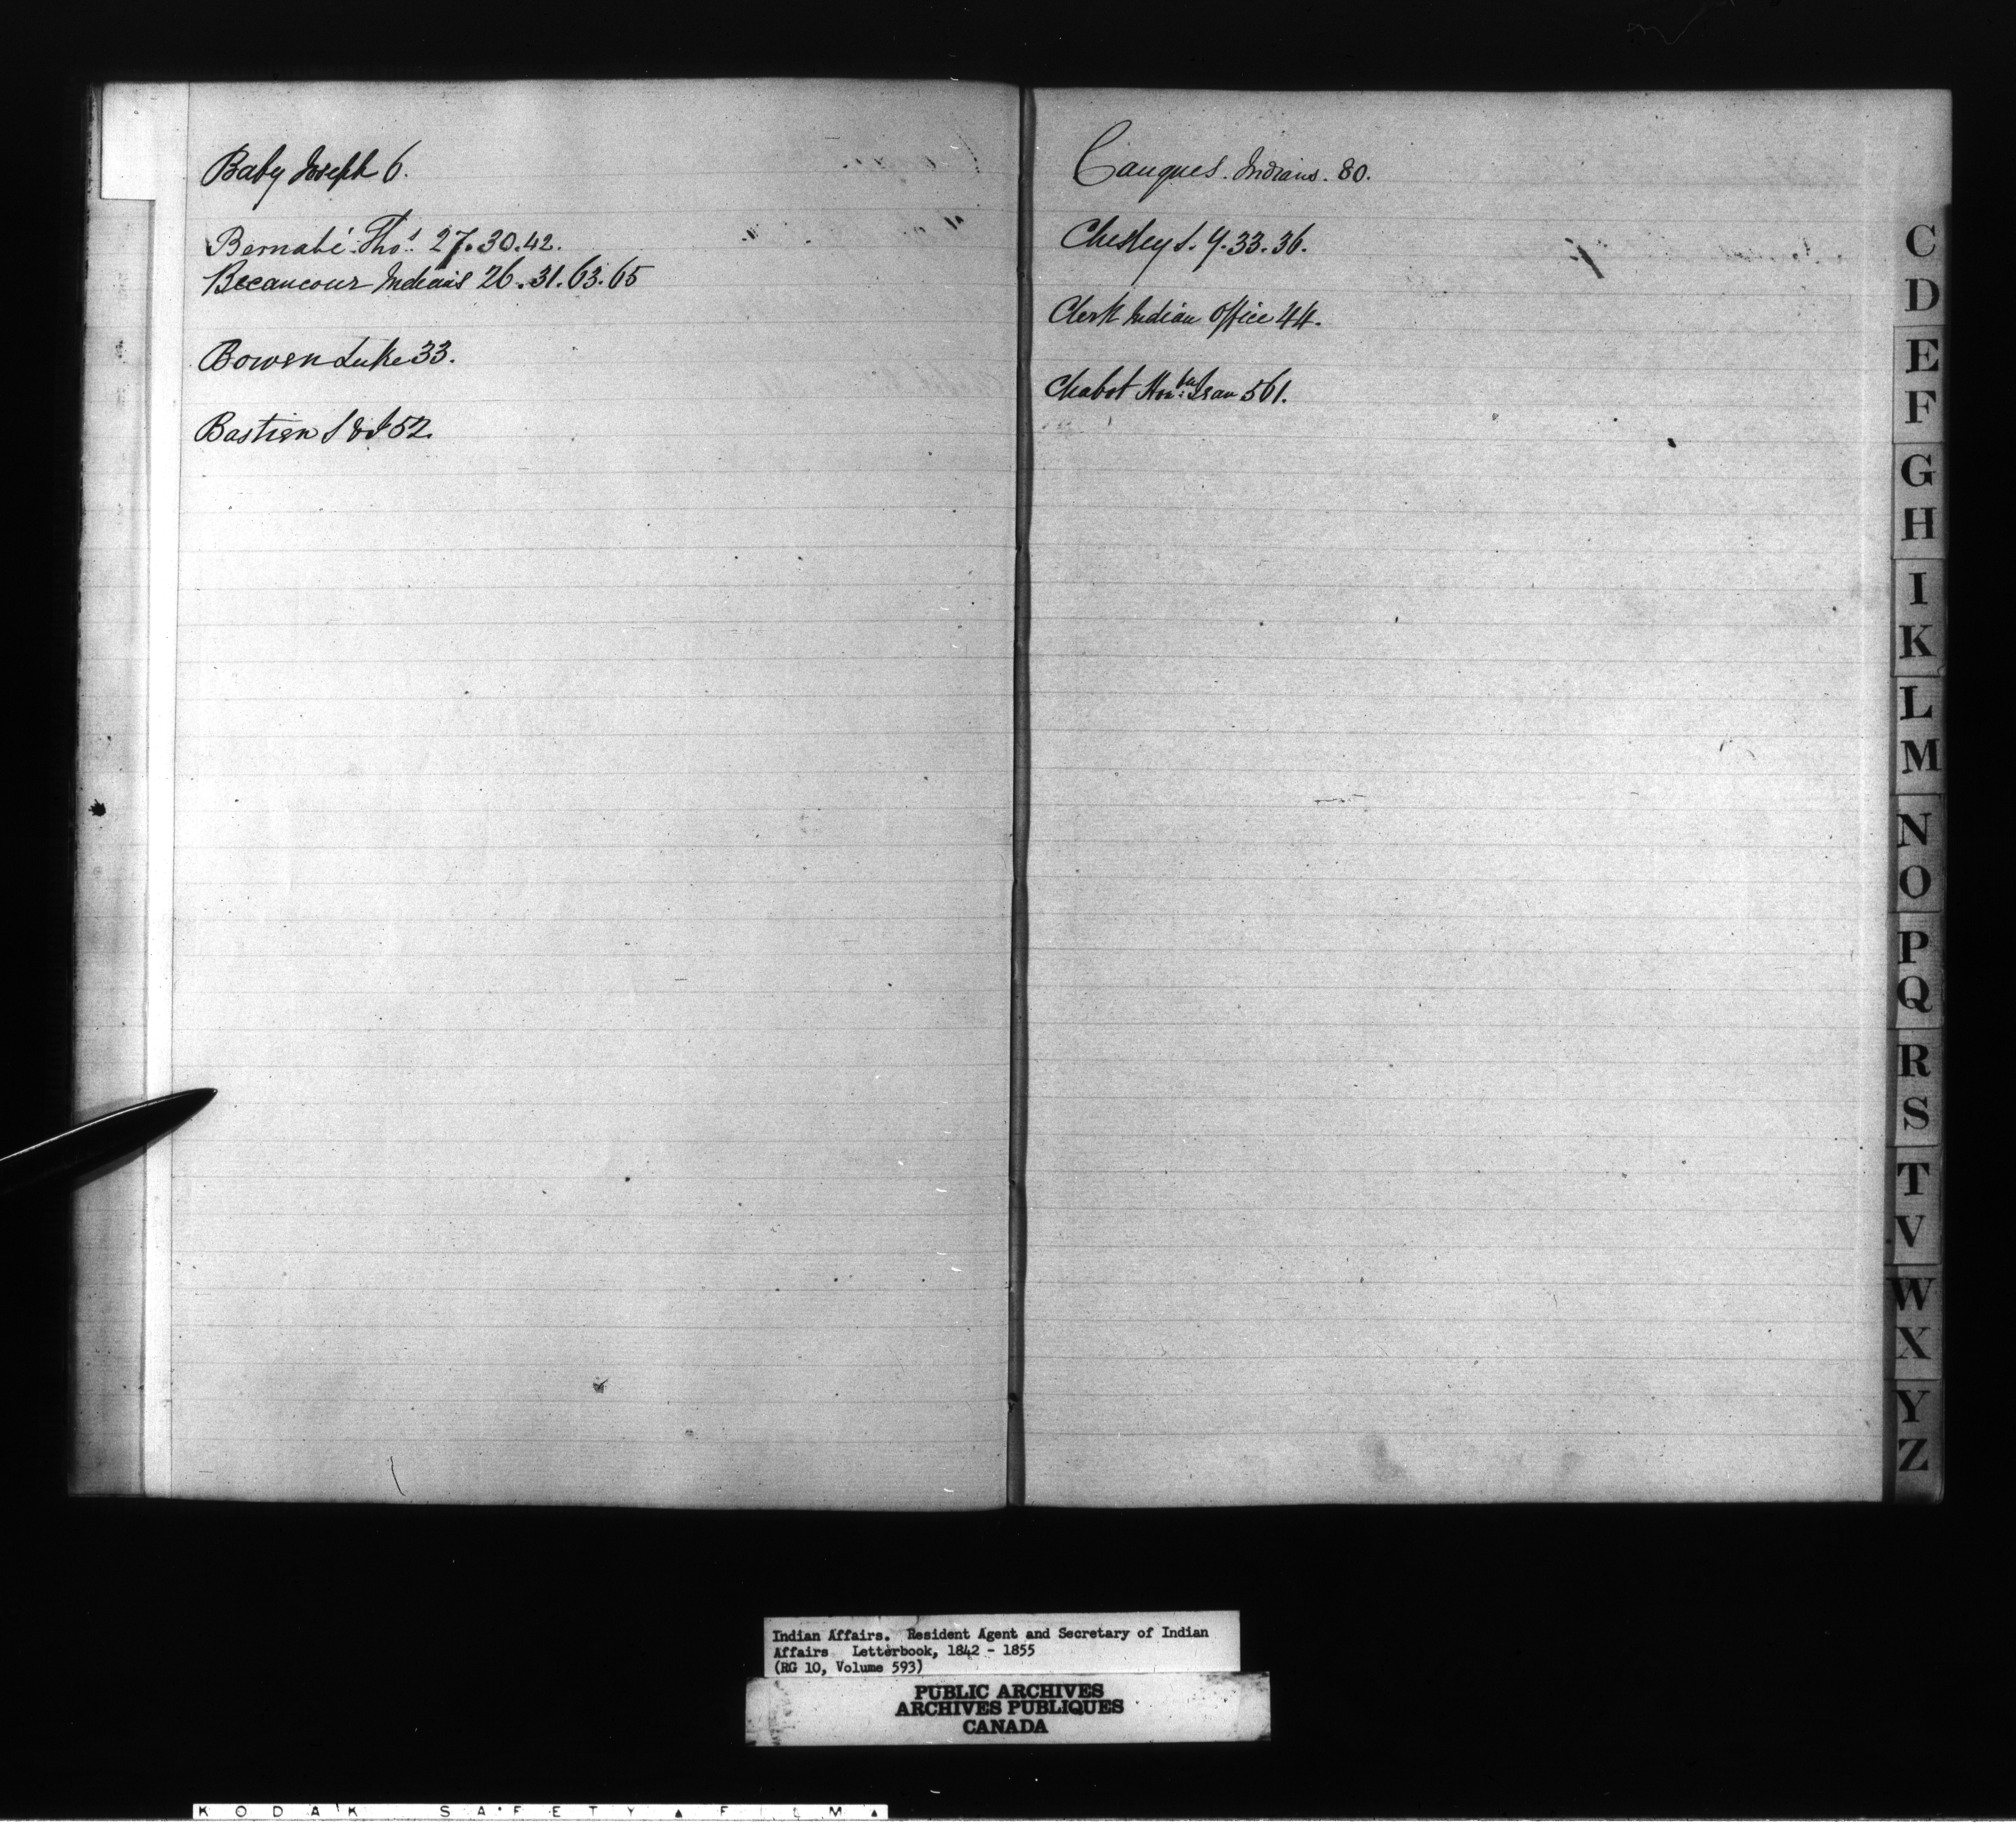 Baby Joseph 6.
Bernabé Thos. 27.30.42.
Becancour Indians 26.31.63.65
Bowen Luke 33.
Bastien S & J 52.
Cauques. Indians. 80.
Chesley S. Y. 33.36.
Clerk Indian Office 44.
Chabot Honble 561.
C
D
E
F
G
H
I
K
L
M
N
O
P
Q
R
S
T
V
W
X
Y
Z
Indian Affairs. Resident Agent and Secretary of Indian
Affairs Letterbook, 1842 - 1855
(RG 10, Volume 593)
PUBLIC ARCHIVES
ARCHIVES PUBLIQUES
CANADA
KODAK SAFETY ▲ FILM ▲